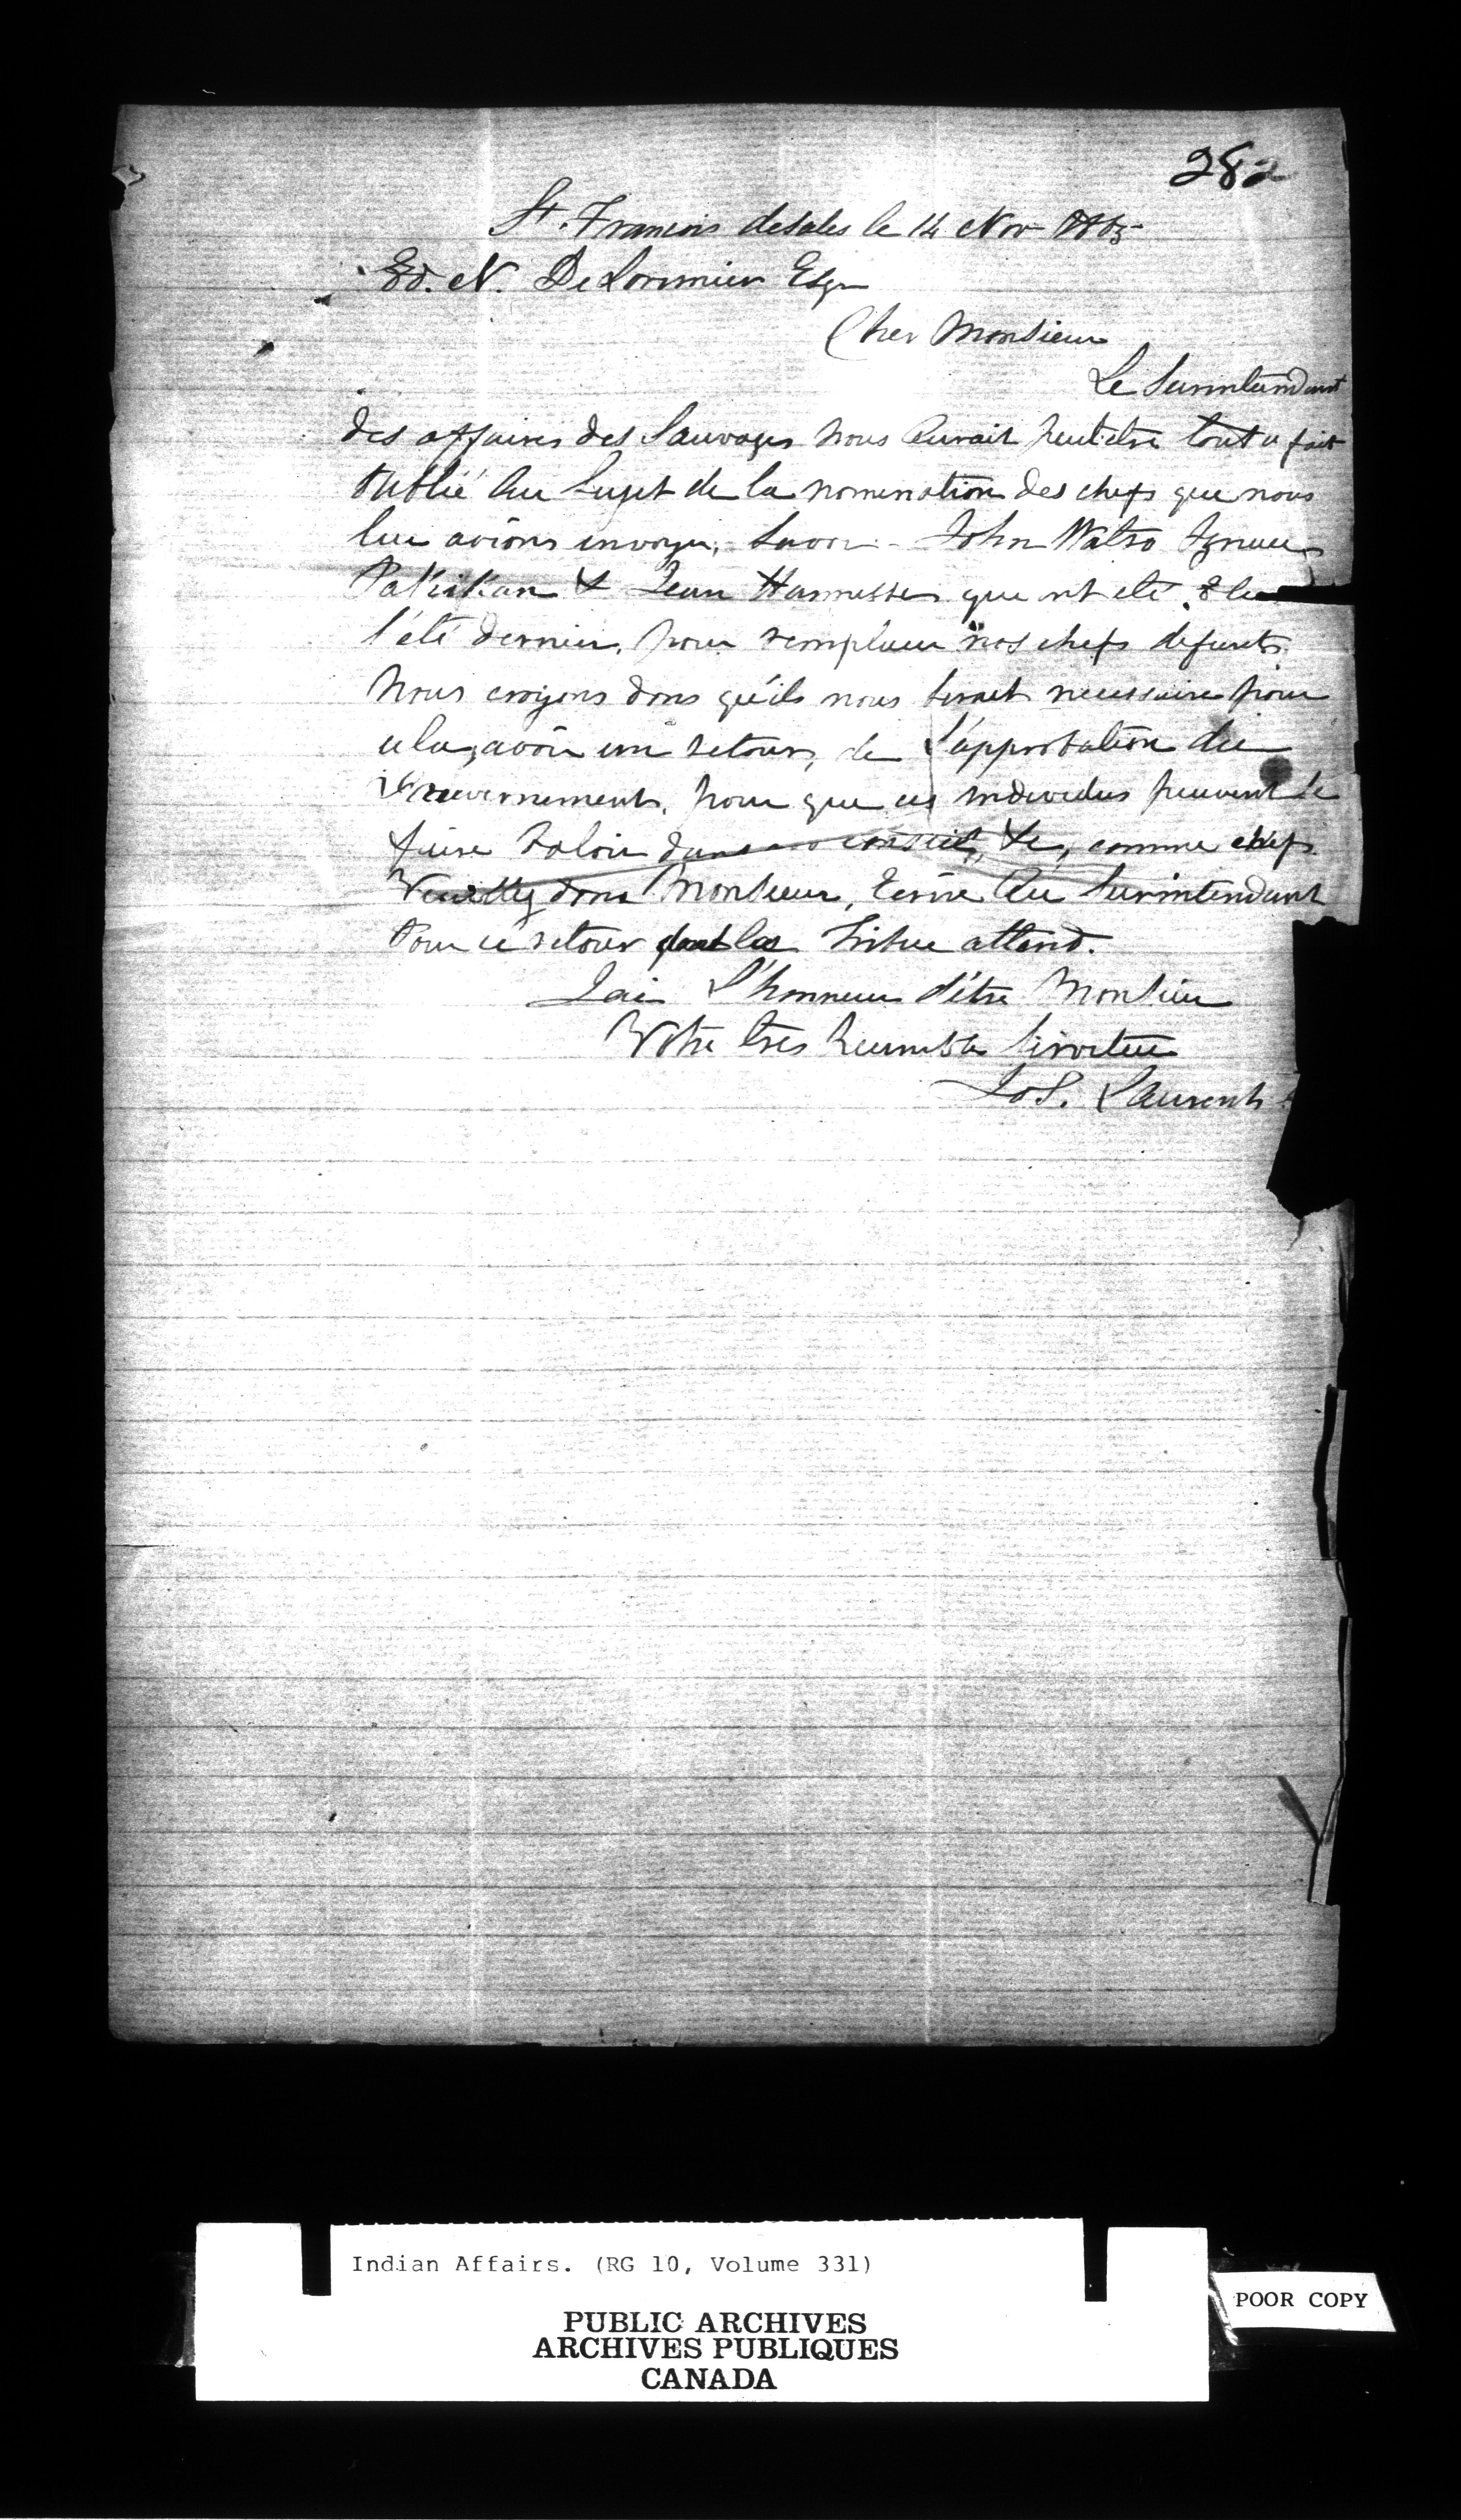 282
St. Francois desales le 14 Nov 1865
Ed. N. De Lorimier Esqr
Cher Monsieur
Le Surintendant
des affaires des Sauvages nous aurait peutetre tout a fait
oublié au sujet de la nomination des chefs que nous
lui avions envoyer, savoir - John Watso Ignace
& Jean Hannesse que ont été Elu
l'été dernier, pour remplacer nos chefs defunts.
Nous croyons donc qu'ils nous serait necessaire pour
cela, avoir un retour, de L'approbation du
Gouvernement, pour que ces individus peuvent se
faire valoir dans conseil, &c, comme chefs.
Veuillez donc Monsieur, Ecrire au Surintendant
Pour ce retour dont la tribue attend.
Jai L'honneur d'être Monsieur
Votre tres humble Serviteur
Jos. Laurent
Indian Affairs. (RG 10, Volume 331)
PUBLIC ARCHIVES
ARCHIVES PUBLIQUES
CANADA
POOR COPY